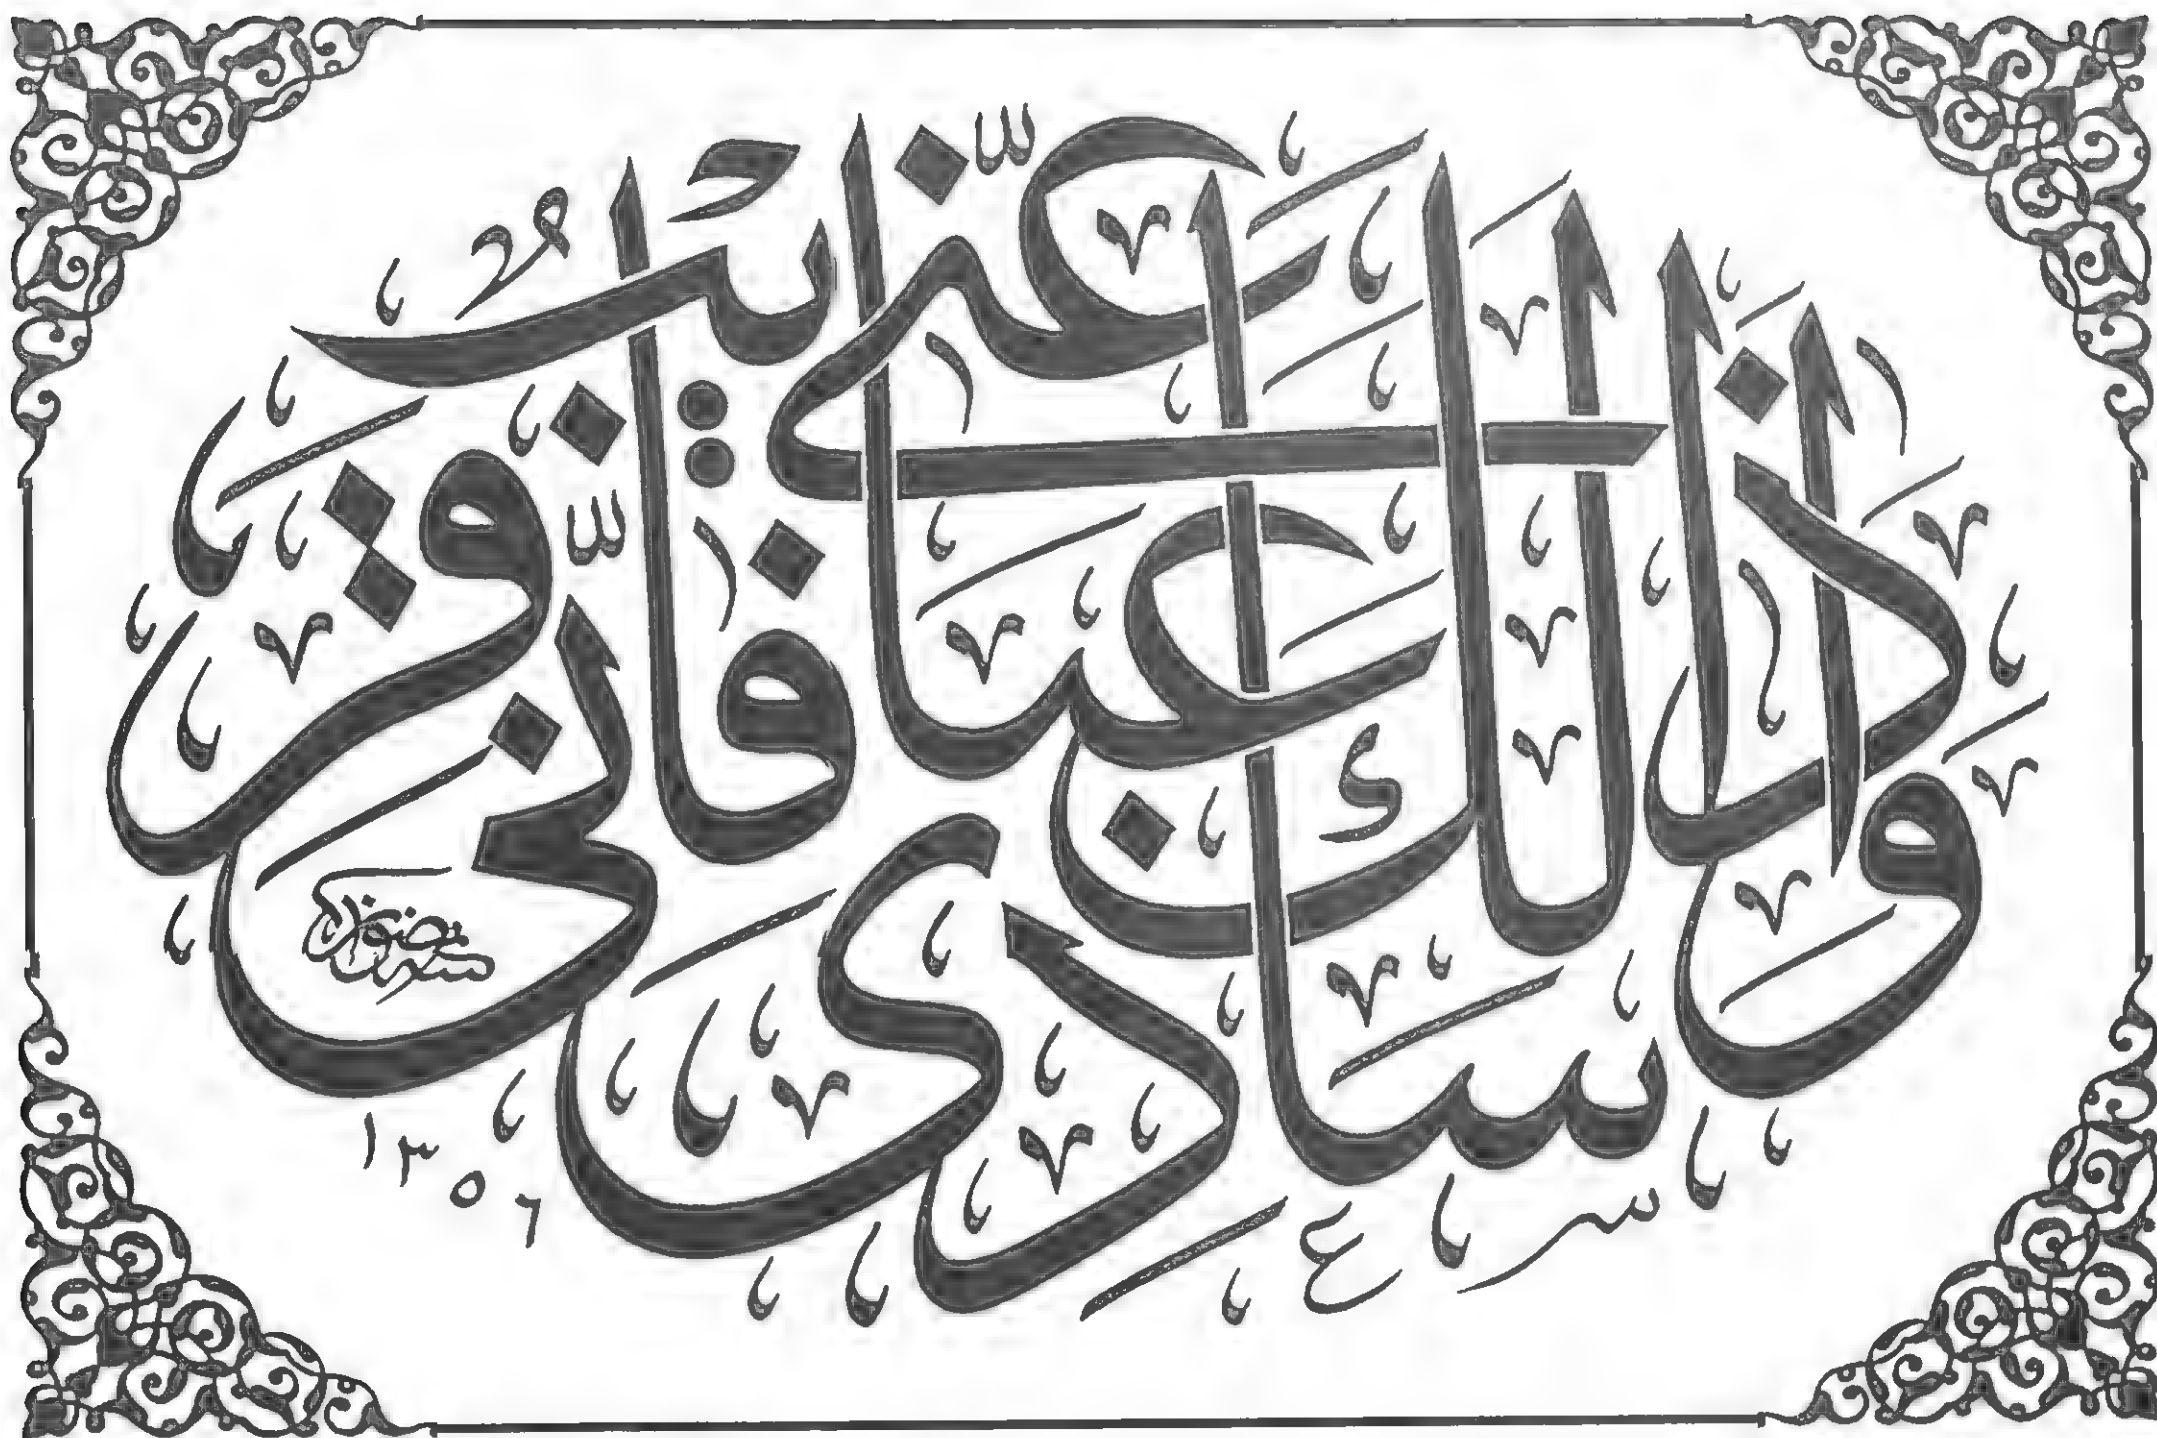 وَإِذَا سَأَلَكَ عِبَادِى عَنِّى فَإِنِّى قَرِيبٌ
١٣٥٦